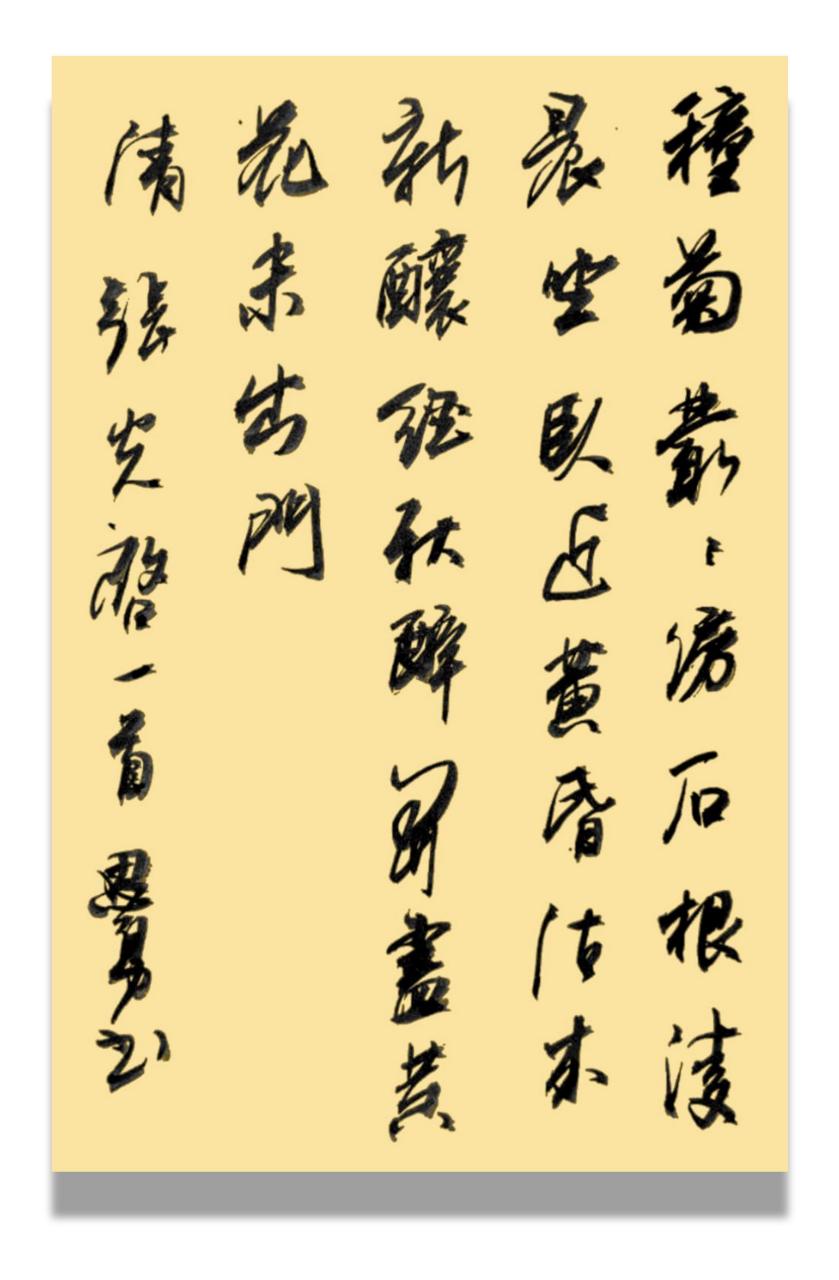 種菊叢〻傍石根凌
晨坐臥近黃昏沽來
新釀經秋醉開盡黃
花未出門
清張光啓一首 書